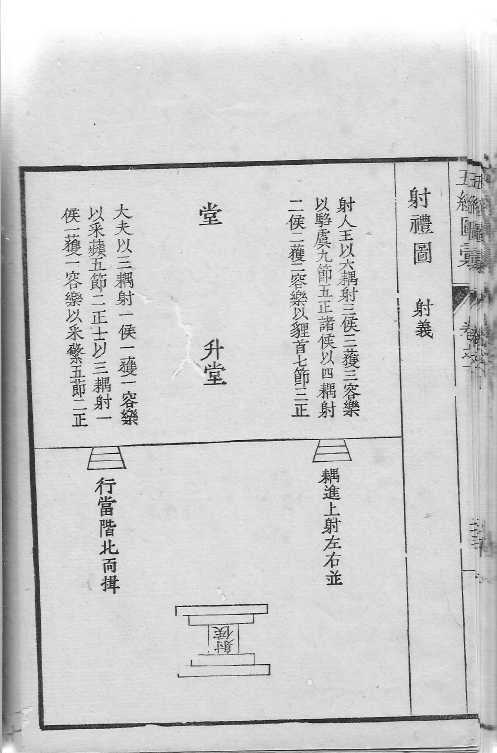 五經圖彙
射禮圖 射義
射人王以六耦射三侯三獲三容樂
以騶虞九節五正諸侯以四耦射
二侯二獲二容樂以貍首七節三正
堂 升堂
大夫以三耦射一侯一獲一容樂
以采蘋五節二正士以三耦射一
侯一獲一容樂以采蘩五節二正
耦進上射左右並
行當階北面揖
射侯